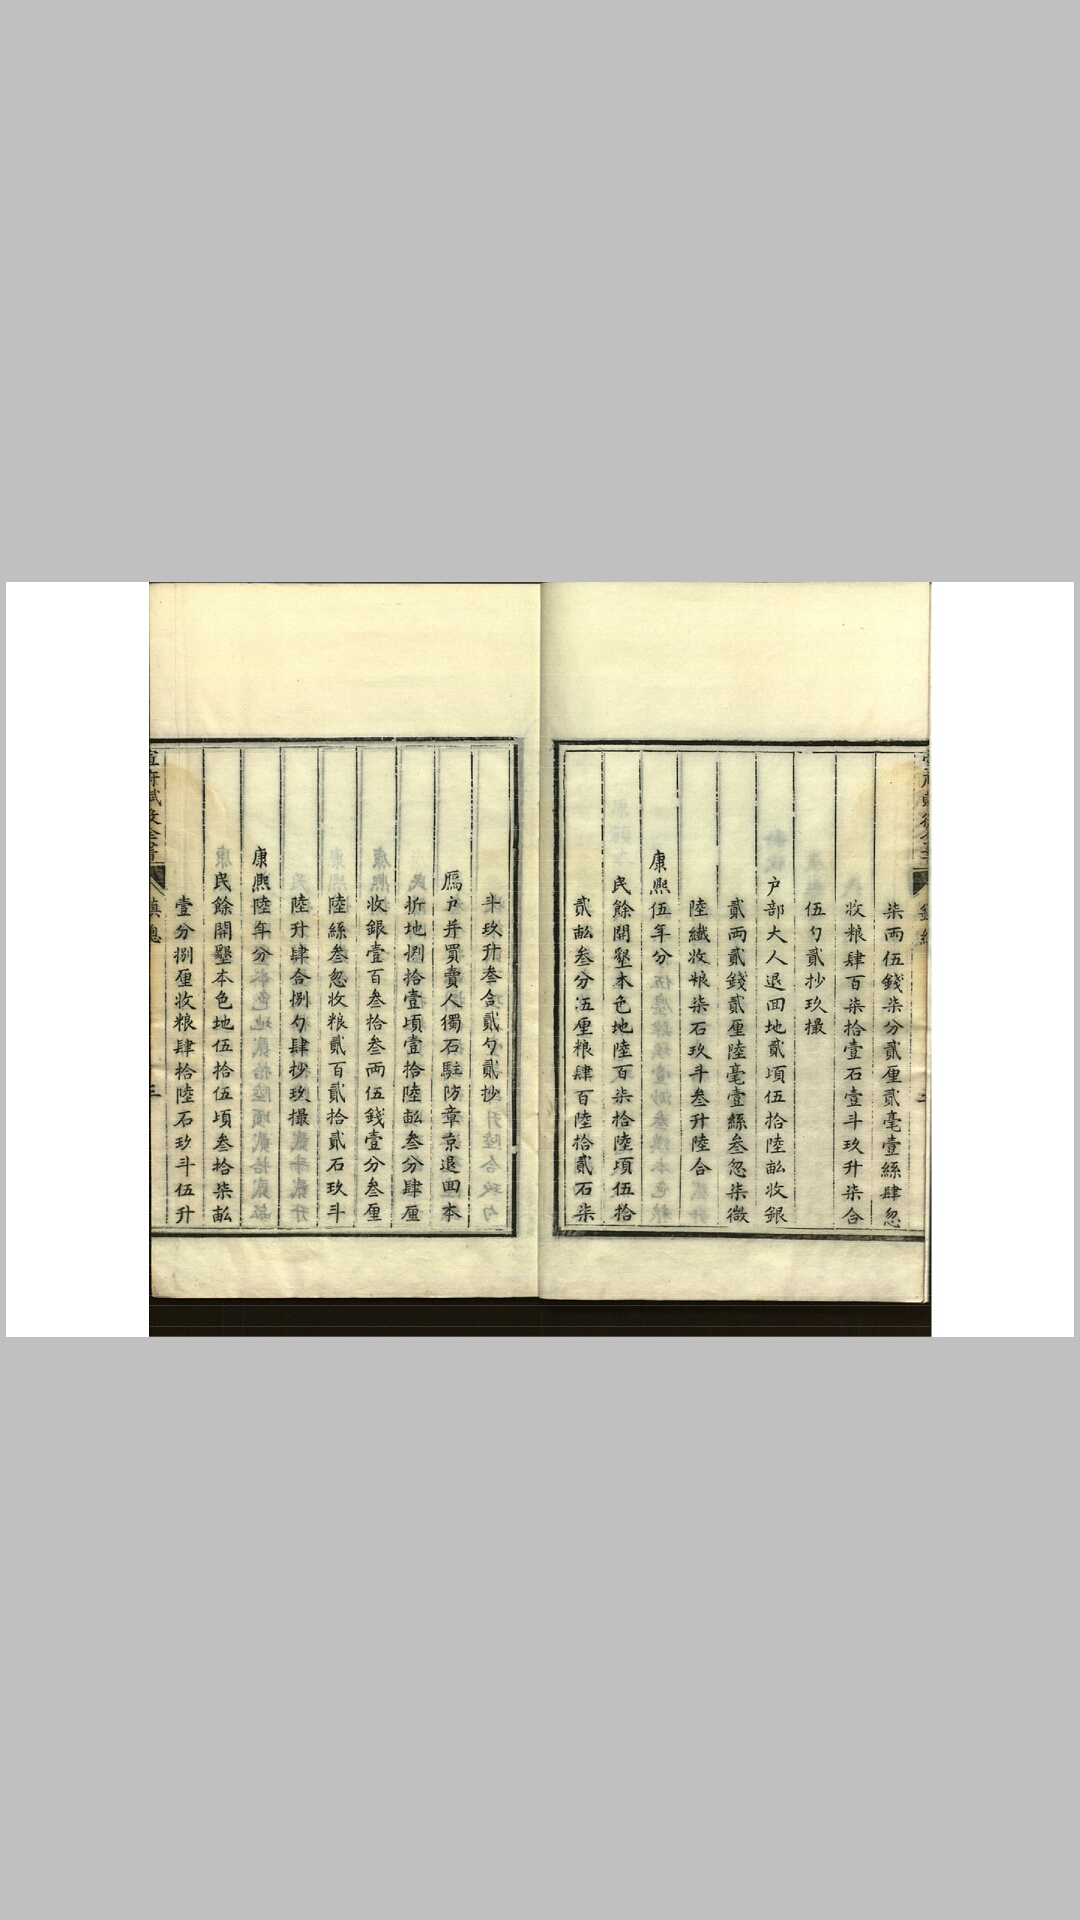 柒兩伍錢柒分貳厘貳毫壹絲肆忽
收粮肆百柒拾壹石壹斗玖升柒合
伍勺貳抄玖撮
户部大人退囬地貳頃伍拾陸畝收銀
貳兩貳錢貳厘陸毫壹絲叁忽柒微
陸纖收粮柒石玖斗叁升陸合
康熙伍年分
民餘開墾本色地陸百柒拾陸頃伍拾
貳畝叁分伍厘粮肆百陸拾貳石柒
斗玖升叁合貳勺貳抄
鴈户并買賣人獨石駐防章京退囬本
折地捌拾壹頃壹拾陸畝叁分肆厘
收銀壹百叁拾叁兩伍錢壹分叁厘
陸絲叁忽收粮貳百貳拾貳石玖斗
陸升肆合捌勺肆抄玖撮
康熙陸年分
民餘開墾本色地伍拾伍頃叁拾柒畝
壹分捌厘收粮肆拾陸石玖斗伍升
鎮總